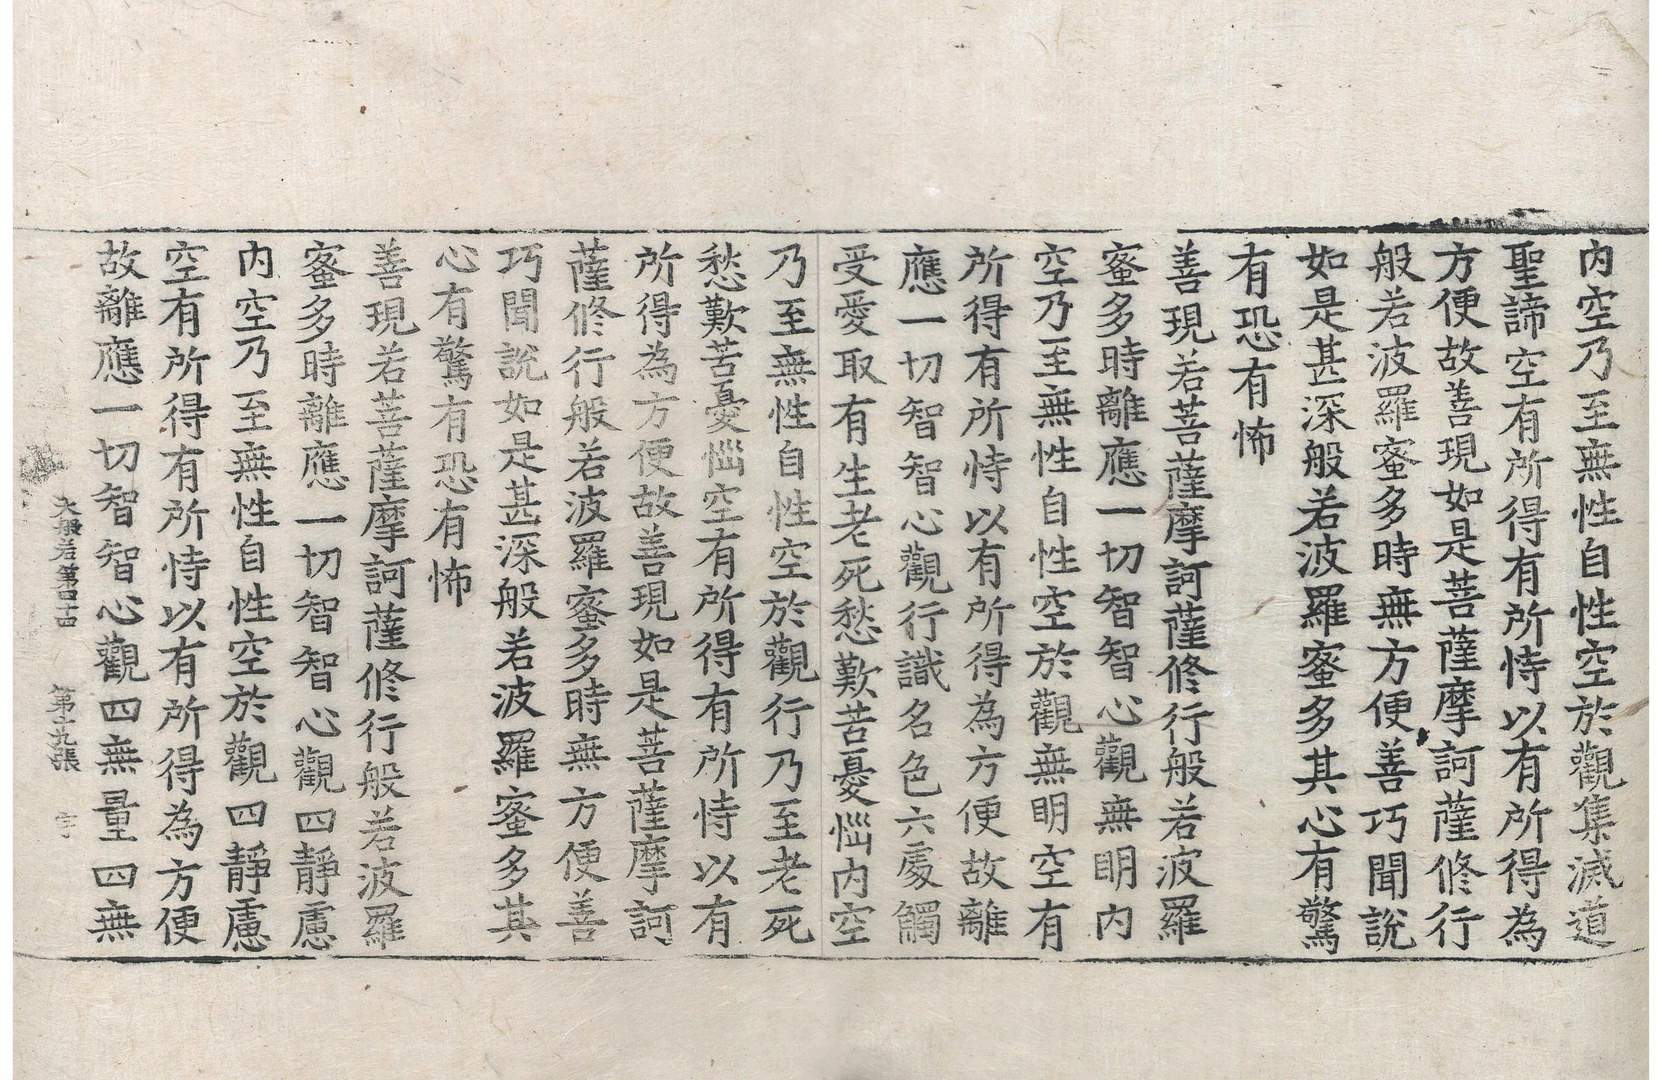 內空乃至無性自性空於觀集滅道
聖諦空有所得有所恃以有所得為
方便故善現如是菩薩摩訶薩修行
般若波羅蜜多時無方便善巧聞說
如是甚深般若波羅蜜多其心有驚
有恐有怖
善現若菩薩摩訶薩修行般若波羅
蜜多時離應一切智智心觀無明內
空乃至無性自性空於觀無明空有
所得有所恃以有所得為方便故離
應一切智智心觀行識名色六處觸
受愛取有生老死愁歎苦憂惱內空
乃至無性自性空於觀行乃至老死
愁歎苦憂惱空有所得有所恃以有
所得為方便故善現如是菩薩摩訶
薩修行般若波羅蜜多時無方便善
巧聞說如是甚深般若波羅蜜多其
心有驚有恐有怖
善現若菩薩摩訶薩修行般若波羅
蜜多時離應一切智智心觀四靜慮
內空乃至無性自性空於觀四靜慮
空有所得有所恃以有所得為方便
故離應一切智智心觀四無量四無
大般若第四十 第十九張 宇